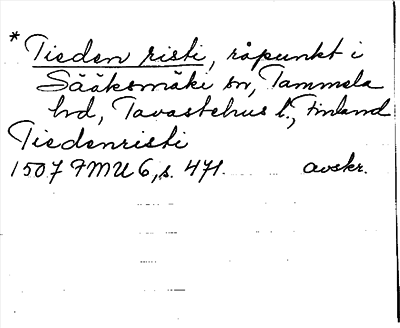 * Tieden risti, råpunkt i
Sääksmäki sn, Tammela
hd, Tavastehus l., Finland
Tiedenristi
1507 FMU 6, s. 471. avskr.